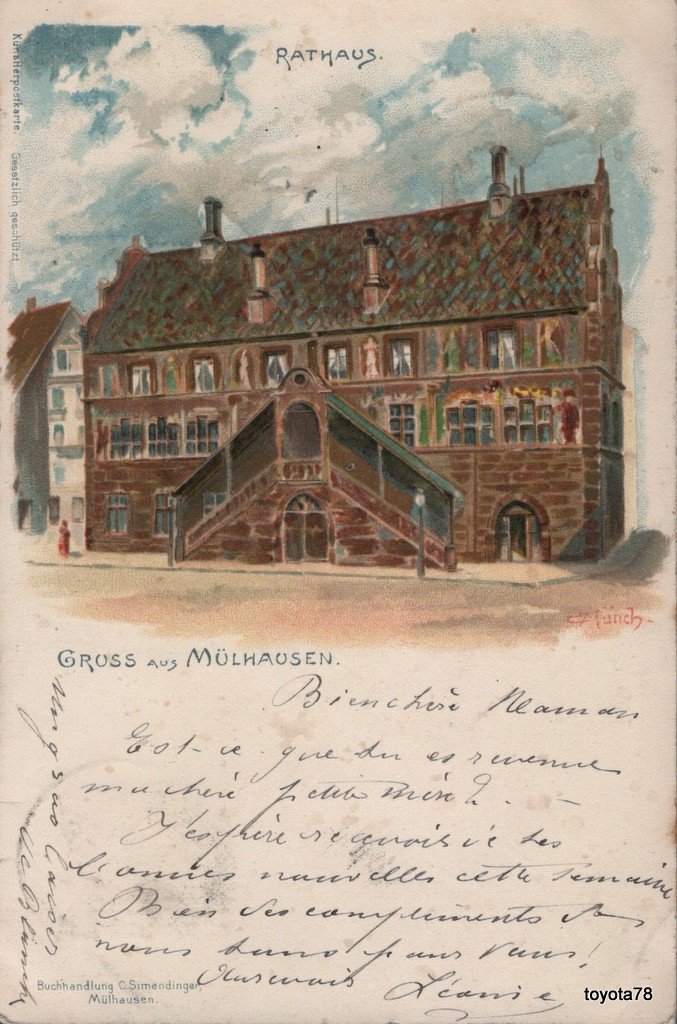 RATHAUS.
Künstlerpostkarte. Gesetzlich geschützt.
C Münch.
GRUSS AUS MÜLHAUSEN.
Bien chère Maman
Est-ce que tu es revenue
ma chère petite mère?
J'espère recevoir de tes
bonnes nouvelles cette semaine
Bien des compliments de
nous tous pour vous!
Aurevoir Léonie
baiser
de Blanche
Buchhandlung C. Simendinger,
Mülhausen.
toyota78